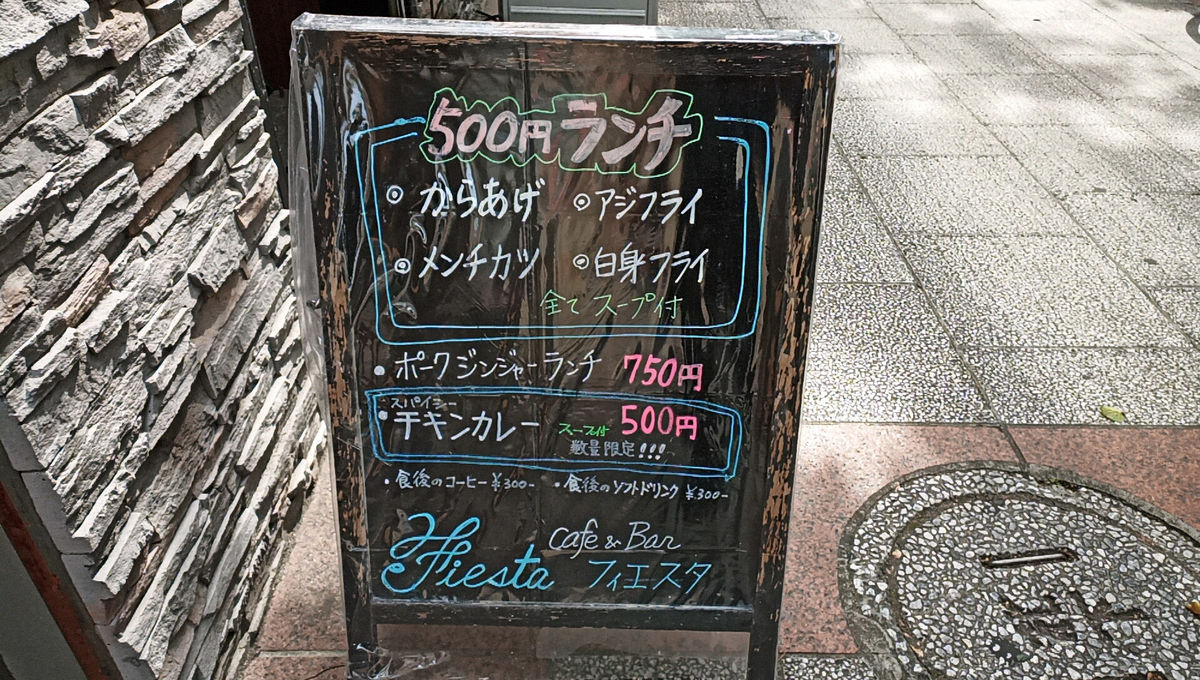 500円ランチ
◎からあげ ◎アジフライ
◎メンチカツ ◎白身フライ
全てスープ付
・ポークジンジャーランチ 750円
スパイシー
・チキンカレー スープ付 500円
数量限定!!!
・食後のコーヒー ¥300- ・食後のソフトドリンク ¥300-
Fiesta cafe & Bar
フィエスタ